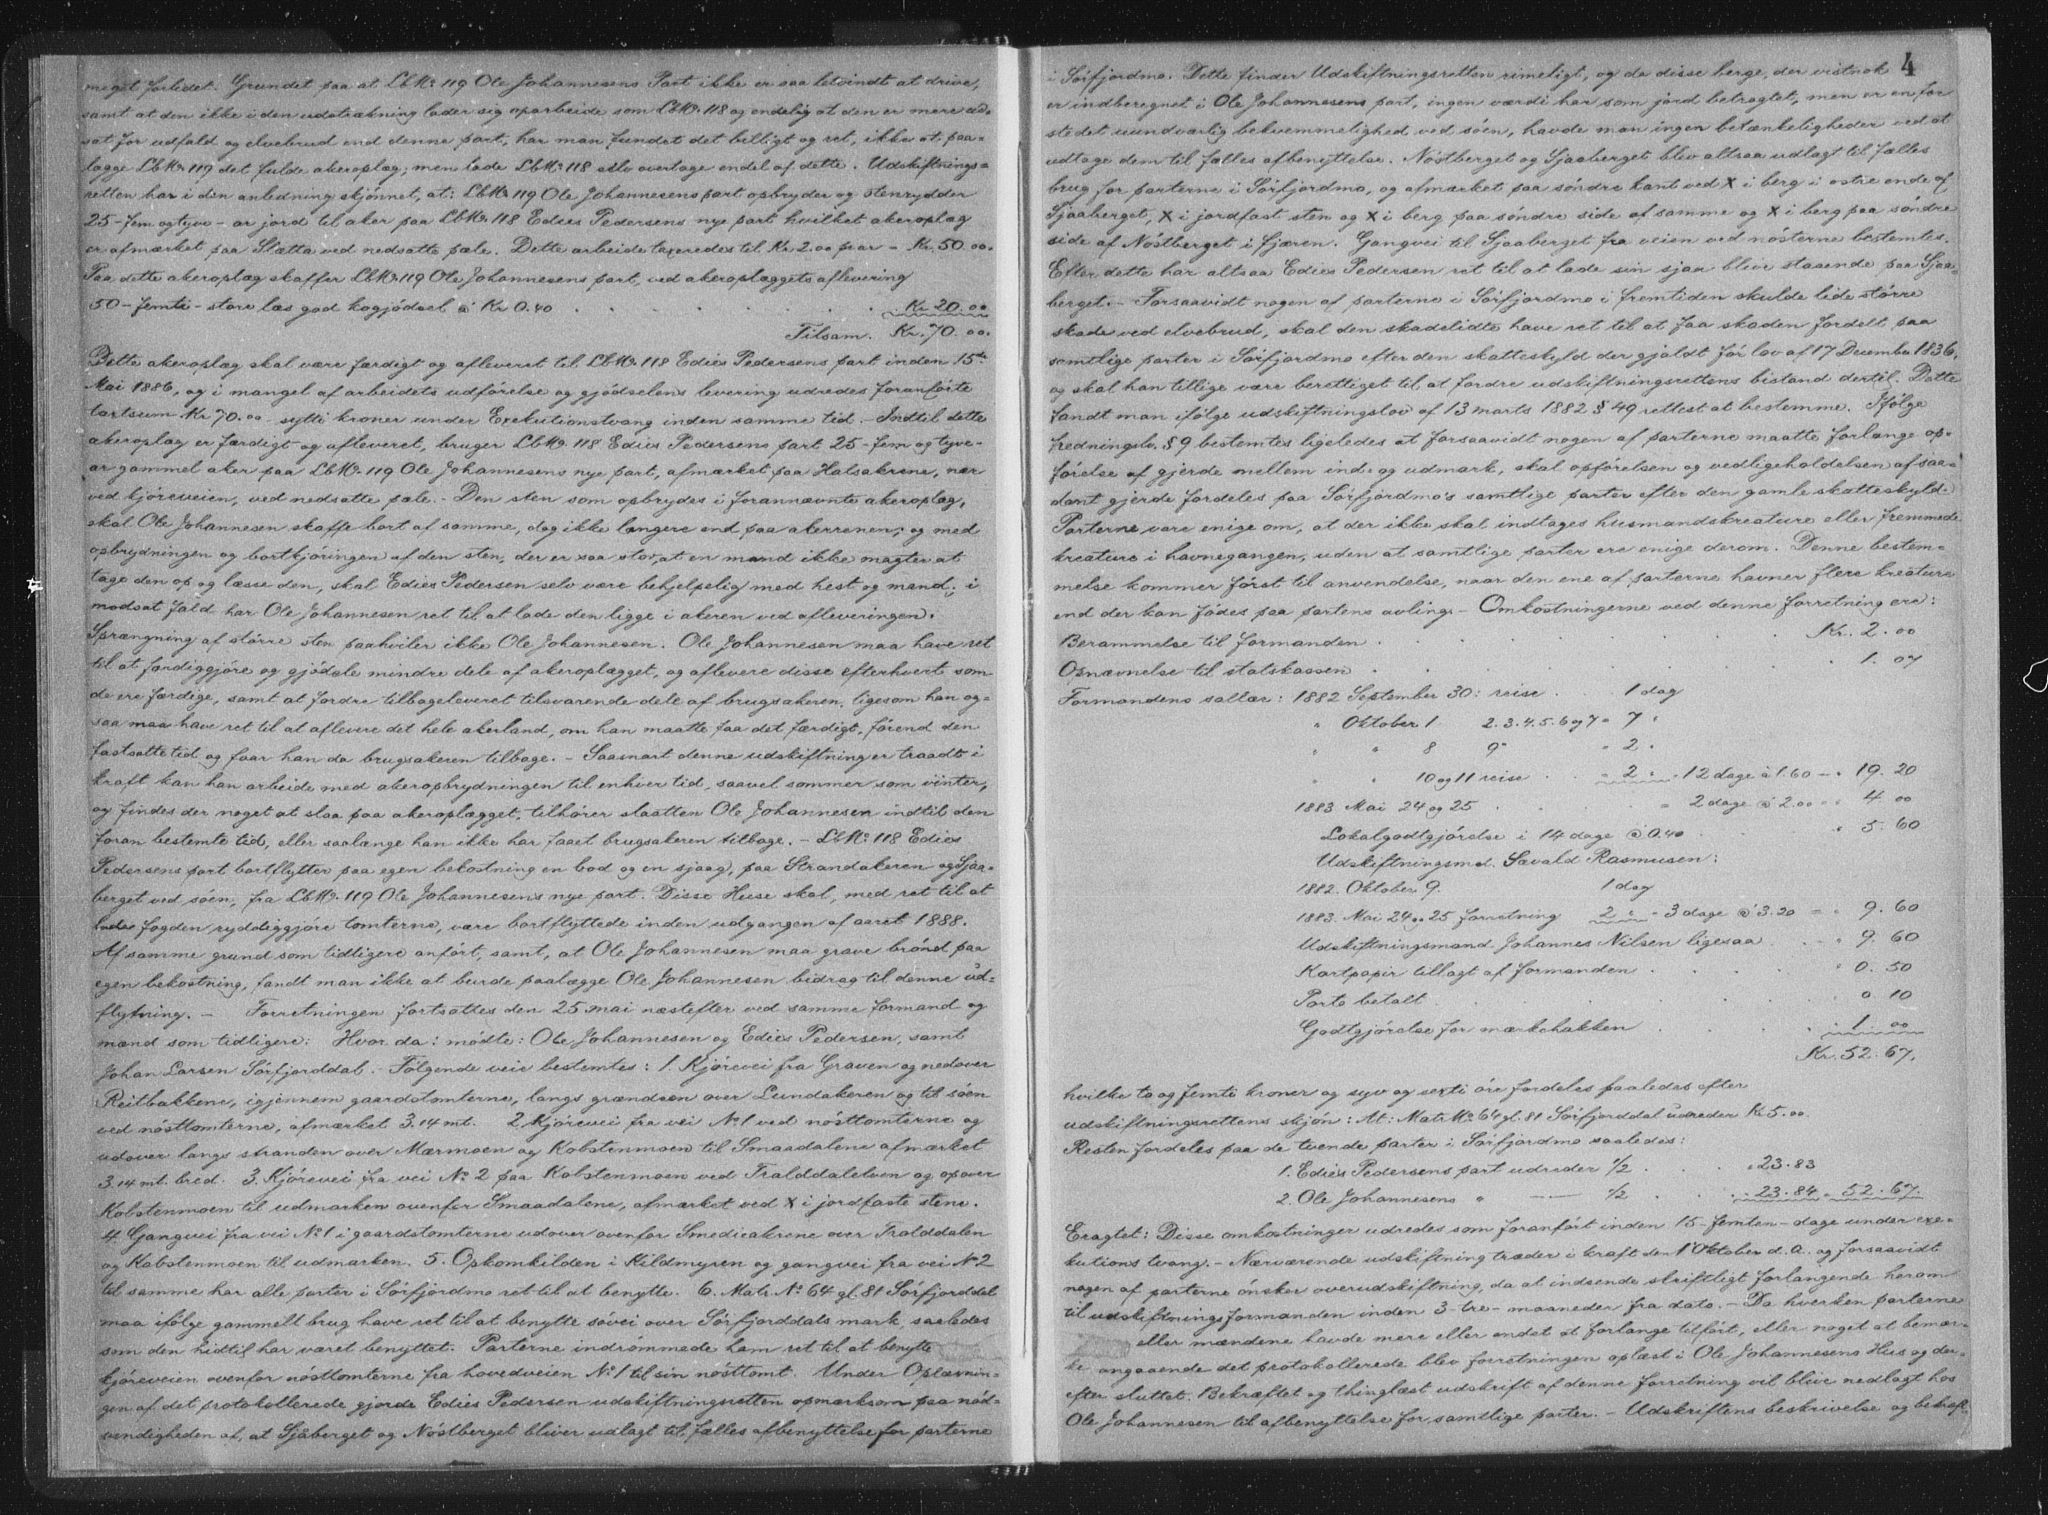 meget forledet. Grundet paa at LbNo. 119 Ole Johannesens Part ikke er saa letvindt at drive,
samt at den ikke i den udstrækning lader sig oparbeide som LbNo. 118 og endelig at den er mere ud-
sat for udfald og elvebrud end denne part, har man fundet det billigt og ret, ikke at paa-
lægge LbNo. 119 det fulde akeroplæg; men lade LbNo. 118 selv overtage endel af dette. Udskiftnings=
retten har i den anledning skjønnet, at: LbNo. 119 Ole Johannesens part opbryder og stenrydder
25 - fem og tyve - ar jord til aker paa LbNo. 118 Edies Pedersens nye part hvilket akeroplæg
er afmærket paa Slætta ved nedsatte pæle. Dette arbeide taxeredes til Kr 2.00 pr ar = Kr. 50.00.
Paa dette akeroplæg skaffer LbNo. 119 Ole Johannesens part, ved akeroplæggets aflevering
50 - femti - store læs god kogjødsel à Kr 0.40 . . . . . . Kr 20.00
Tilsam. Kr. 70.00.
Dette akeroplæg skal være færdigt og afleveret til LbNo. 118 Edies Pedersens part inden 15de
Mai 1886, og i mangel af arbeidets udførelse og gjødselens levering udredes foranførte
taxtsum Kr 70.00 - sytti kroner under Exekutionstvang inden samme tid. - Indtil dette
akeroplæg er færdigt og afleveret, bruger LbNo. 118 Edies Pedersens part 25 - fem og tyve -
ar gammel aker paa LbNo. 119 Ole Johannesens nye part, afmærket paa Halsakrene, nær
ved kjøreveien, ved nedsatte pæle. - Den sten som opbrydes i forannævnte akeroplæg,
skal Ole Johannesen skaffe bort af samme, dog ikke længere end paa akerrenen; og med
opbrydningen og bortkjøringen af den sten, der er saa stor, at en mand ikke magter at
tage den op og læsse den, skal Edies Pedersen selv være behjelpelig med hest og mand; i
modsat fald har Ole Johannesen ret til at lade den ligge i akeren ved afleveringen.
Sprængning af større sten paahviler ikke Ole Johannesen. Ole Johannesen maa have ret
til at færdiggjøre og gjødsle mindre dele af akeroplægget, og aflevere disse efterhvert som
de ere færdige, samt at fordre tilbageleveret tilsvarende dele af brugsakeren, ligesom han og-
saa maa have ret til at aflevere det hele akerland, om han maatte faa det færdigt, førend den
fastsatte tid og faar han da brugsakeren tilbage. - Saasnart denne udskiftning er traadt i
kraft kan han arbeide med akeropbrydningen til enhver tid, saavel sommer som vinter,
og findes der noget at slaa paa akeroplægget, tilhører slaatten Ole Johannesen indtil den
foran bestemte tid, eller saalænge han ikke har faaet brugsakeren tilbage. - LbNo. 118 Edies
Pedersens part bortflytter paa egen bekostning en bod og en sjaag, paa Strandakeren og Sjaa-
berget ved søen, fra LbNo. 119 Ole Johannesens nye part. Disse Huse skal, med ret til at
lade fogden ryddiggjøre tomterne, være bortflyttede inden udgangen af aaret 1888.
Af samme grund som tidligere anført, samt, at Ole Johannesen maa grave brønd paa
egen bekostning, fandt man ikke at burde paalægge Ole Johannesen bidrag til denne ud-
flytning. - Forretningen fortsattes den 25 mai næstefter ved samme formand og
mænd som tidligere: Hvor da: mødte: Ole Johannesen og Edies Pedersen, samt
Johan Larsen Sørfjorddal. Følgende veie bestemtes: 1. Kjørevei fra Graven og nedover
Reitbakkene, igjennem gaardstomterne, langs grændsen over Lundakeren og til søen
ved nøsttomterne, afmærket 3.14 mt. 2. Kjørevei fra vei No 1 ved nøsttomterne og
udover langs stranden over Mærmoen og Kobstenmoen til Smaadalene afmærket
3.14 mt. bred. 3. Kjørevei fra vei No 2 paa Kobstenmoen ved Tralddalelven og opover
Kobstenmoen til udmarken ovenfor Smaadalene, afmærket ved X i jordfaste stene.
4. Gangvei fra vei No 1 i gaardstomterne udover ovenfor Smedieakrene over Tralddalen
og Kobstenmoen til udmarken. 5. Opkomkilden i Kildmyren og gangvei fra vei No 2
til samme har alle parter i Sørfjordmo ret til at benytte. 6. Matr. No. 64 gl. 81 Sørfjorddal
maa ifølge gammelt brug have ret til at benytte søvei over Sørfjorddals mark, saaledes
som den hidtil har været benyttet. Parterne indrømmede ham ret til at benytte
kjøreveien ovenfor nøsttomterne fra hovedveien No 1 til sin nøsttomt. Under Oplæsnin-
gen af det protokollerede gjorde Edies Pedersen udskiftningsretten opmærksom paa nød-
vendigheden af, at Sjåberget og Nøstberget bliver udlagt til fælles afbenyttelse for parterne
4
i Sørfjordmo. Dette finder Udskiftningsretten rimeligt, og da disse berge, der vistnok
er indberegnet i Ole Johannesens part, ingen værdi har som jord betragtet, men er en for
stedet uundværlig bekvemmelighed ved søen, havde man ingen betænkeligheder ved at
udtage dem til fælles afbenyttelse. Nøstberget og Sjaaberget blev altsaa udlagt til fælles
brug for parterne i Sørfjordmo, og afmærket paa søndre kant ved X i berg i østre ende af
Sjaaberget, X i jordfast sten og X i berg paa søndre side af samme og X i berg paa søndre
side af Nøstberget i fjæren. Gangvei til Sjaaberget fra veien ved nøsterne bestemtes.
Efter dette har altsaa Edies Pedersen ret til at lade sin sjaa blive staaende paa Sjaa-
berget. - Forsaavidt nogen af parterne i Sørfjordmo i fremtiden skulde lide større
skade ved elvebrud, skal den skadelidte have ret til at faa skaden fordelt paa
samtlige parter i Sørfjordmo efter den skatteskyld der gjaldt før lov af 17 December 1836,
og skal han tillige være berettiget til at fordre udskiftningsrettens bistand dertil. Dette
fandt man ifølge udskiftningslov af 13 marts 1882 § 49 rettest at bestemme. Ifølge
fredningslv. § 9 bestemtes ligeledes at forsaavidt nogen af parterne maatte forlange op-
førelse af gjerde mellem ind- og udmark, skal opførelsen og vedligeholdelsen af saa-
dant gjerde fordeles paa Sørfjordmo's samtlige parter efter den gamle skatteskyld.
Parterne vare enige om, at der ikke skal indtages husmandskreature eller fremmede
kreature i havnegangen, uden at samtlige parter ere enige derom. Denne bestem-
melse kommer først til anvendelse, naar den ene af parterne havner flere kreature
end der kan fødes paa partens avling. - Omkostningerne ved denne forretning ere:
Berammelse til formanden . . . . . . Kr. 2.00
Opnævnelse til statskassen . . . . . . 1.07
Formandens sallær: 1882 September 30: reise . . 1 dag
" Oktober 1 2. 3. 4. 5. 6 og 7 = 7 "
" " 8 9 " 2 "
" " 10 og 11 reise . . " 2 " = 12 dage à 1.60 - " 19.20
1883 Mai 24 og 25 . . . . = 2 dage à 2.00 = " 4.00
Lokalgodtgjørelse i 14 dage à 0.40 . . . " 5.60
Udskiftningsmd. Sævald Rasmusen:
1882. Oktober 9. 1 dag
1883. Mai 24 og 25 forretning 2 " = 3 dage à 3.20 = " 9.60
Udskiftningsmand Johannes Nilsen ligesaa . . - " 9.60
Kartpapir tillagt af formanden . . . . " 0.50
Porto betalt . . . . . " 0.10
Godtgjørelse for mærkehakken . . . . 1.00
Kr. 52.67.
hvilke to og femti kroner og syv og sexti øre fordeles saaledes efter
udskiftningsrettens skjøn: At: Matr. No. 64 gl. 81 Sørfjorddal udreder Kr 5.00.
Resten fordeles paa de tvende parter i Sørfjordmo saaledes:
1. Edies Pedersens part udreder 1/2 . . . " 23.83
2. Ole Johannesens " —— 1/2 . . . " 23.84 = 52.67.
Eragtet: Disse omkostninger udredes som foranført inden 15 - femten - dage under exe-
kutions tvang. - Nærværende udskiftning træder i kraft den 1 Oktober d. A. og forsaavidt
nogen af parterne ønsker overudskiftning, da at indsende skriftligt forlangende herom
til udskiftningsformanden inden 3 - tre - maaneder fra dato. - Da hverken parterne
eller mændene havde mere eller andet at forlange tilført, eller noget at bemær-
ke angaaende det protokollerede blev forretningen oplæst i Ole Johannesens Hus og der-
efter sluttet. Bekræftet og thinglæst udskrift af denne forretning vil blive nedlagt hos
Ole Johannesen til afbenyttelse for samtlige parter. - Udskriftens beskrivelse og bekræf-